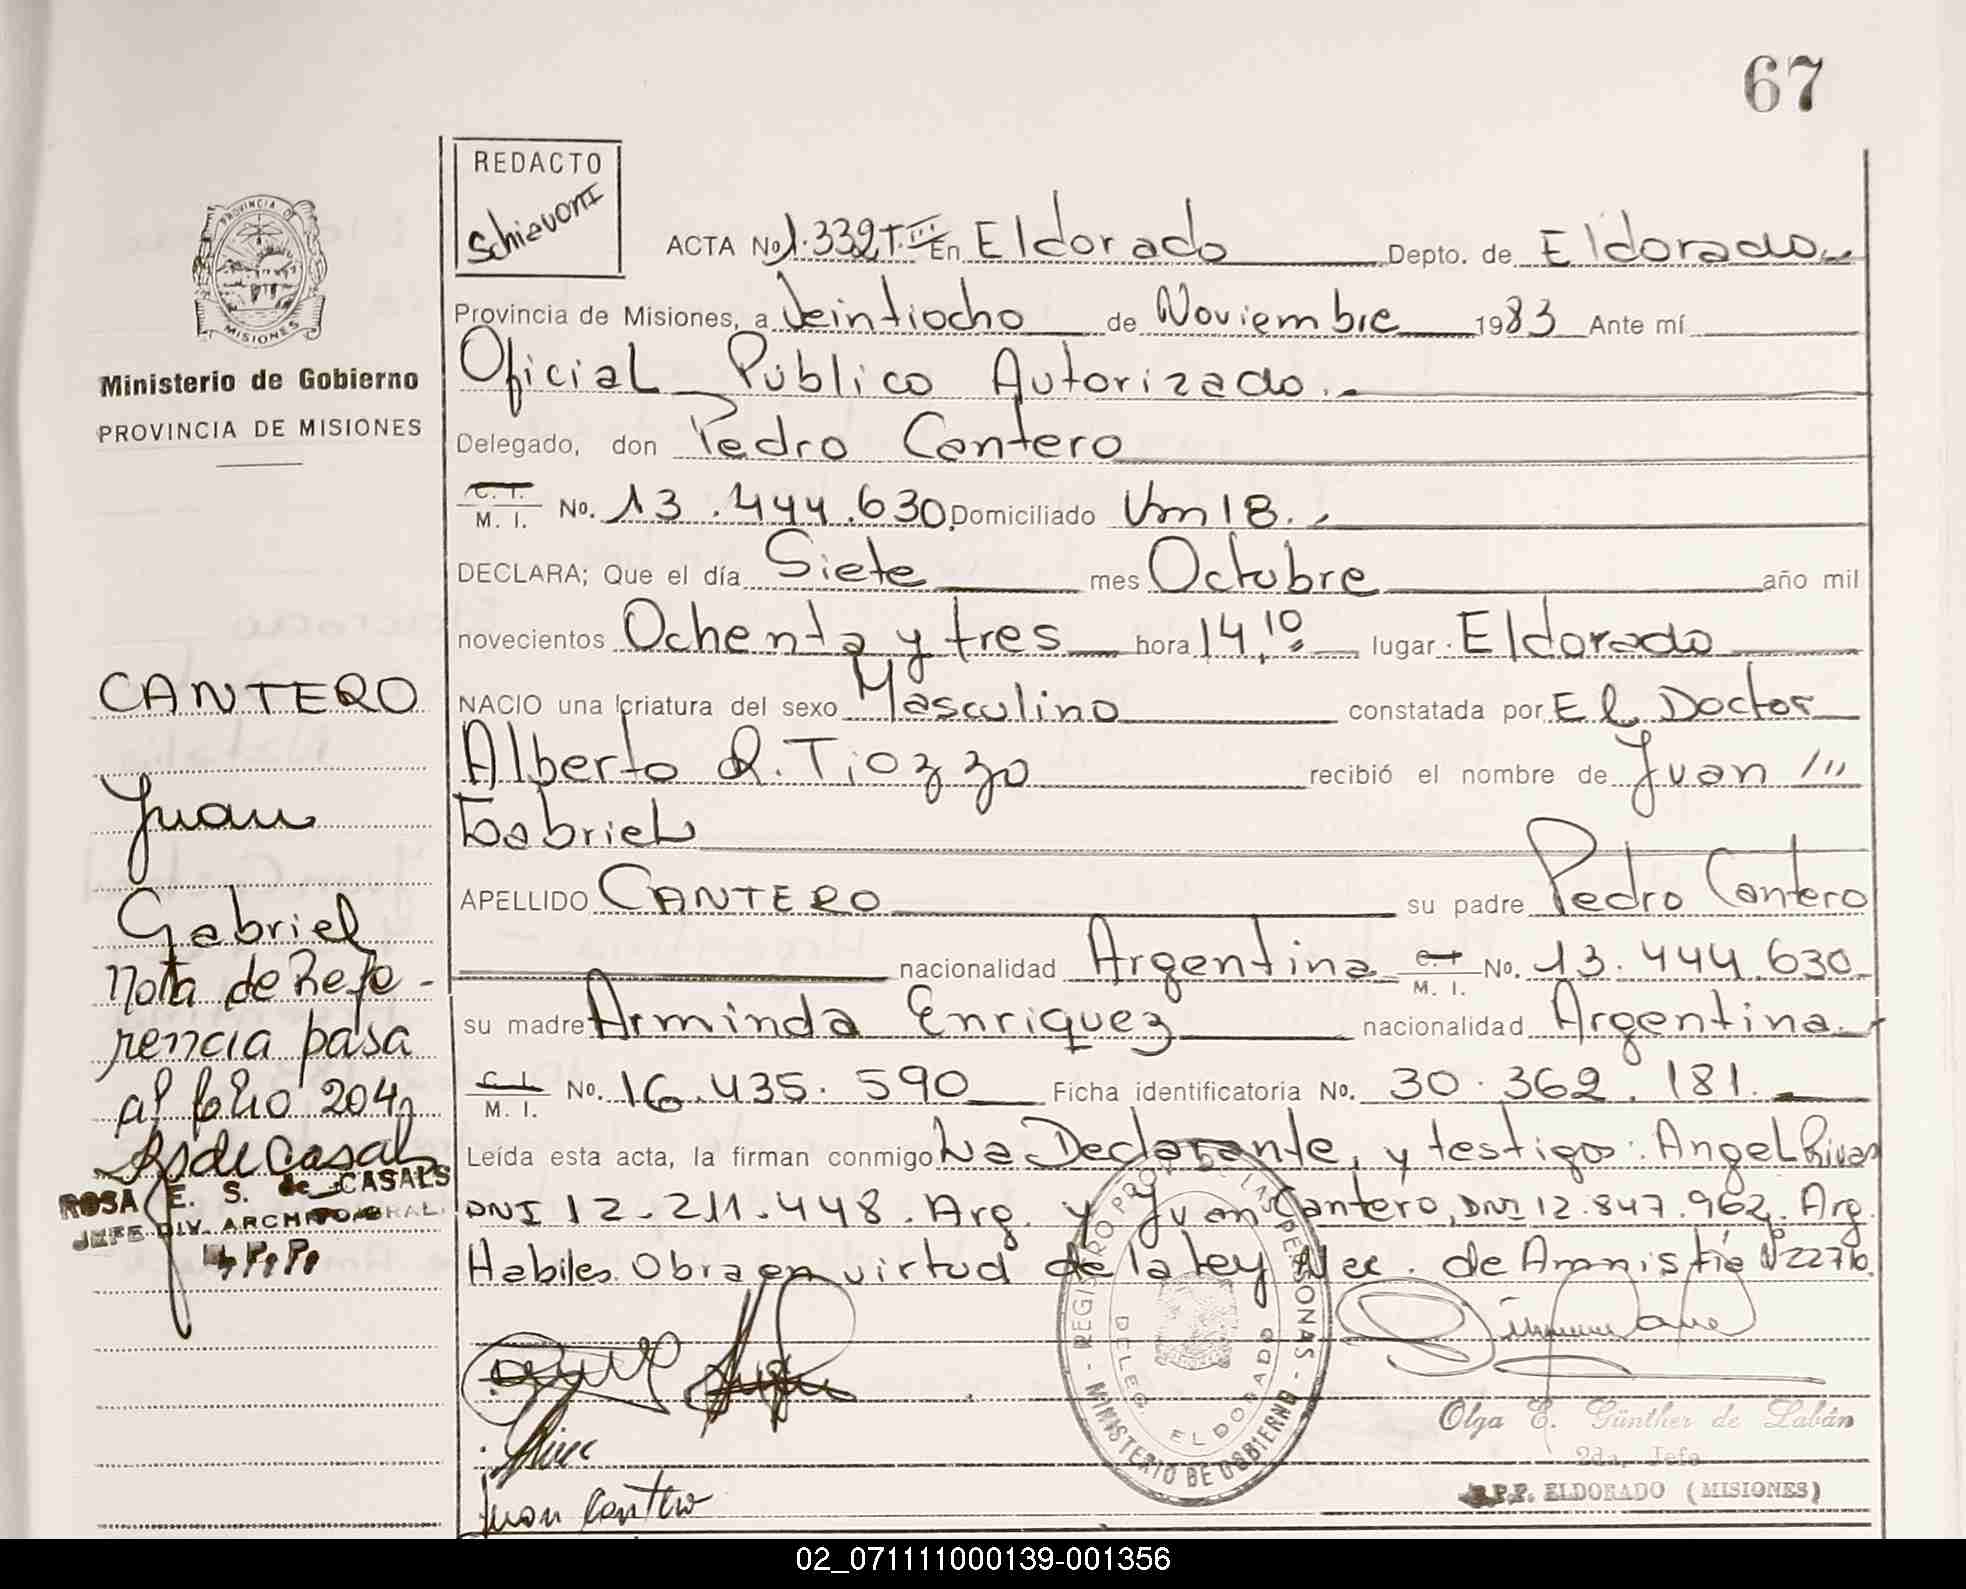 67
REDACTO
Schievoni
ACTA No 1.332 T. III En Eldorado Depto. de Eldorado
PROVINCIA DE
MISIONES
Provincia de Misiones, a Veintiocho de Noviembre 1983 Ante mí
Ministerio de Gobierno
PROVINCIA DE MISIONES
Oficial Público Autorizado.-
Delegado, don Pedro Cantero
C. I.
M. I. No. 13.444.630 Domiciliado Km 18.-
DECLARA; Que el día Siete mes Octubre año mil
novecientos Ochenta y tres hora 14,10 lugar Eldorado
NACIO una criatura del sexo Masculino constatada por El Doctor
Alberto R. Tiozzo recibió el nombre de Juan ///
Gabriel
APELLIDO CANTERO su padre Pedro Cantero
nacionalidad Argentina C. I. M. I. No. 13.444.630
su madre Arminda Enriquez nacionalidad Argentina
C. I.
M. I. No. 16.435.590 Ficha identificatoria No. 30.362.181.-
Leída esta acta, la firman conmigo La Declarante, y testigos: Angel Rivas
DNI 12.211.448. Arg. y Juan Cantero, DNI 12.847.962. Arg.
Habiles. Obra en virtud de la ley Nac. de Amnistía Nº 22716.
CANTERO
Juan
Gabriel
Nota de Refe-
rencia pasa
al folio 204
RS de Casals
ROSA E. S. de CASALS
JEFE DIV. ARCHIVO GRAL.
REGISTRO PROV. DE LAS PERSONAS - MINISTERIO DE GOBIERNO -
DELEG. ELDORADO
Juan Cantero
Olga E. Günther de Labán
2da. Jefa
R.P.P. ELDORADO (MISIONES)
02_071111000139-001356